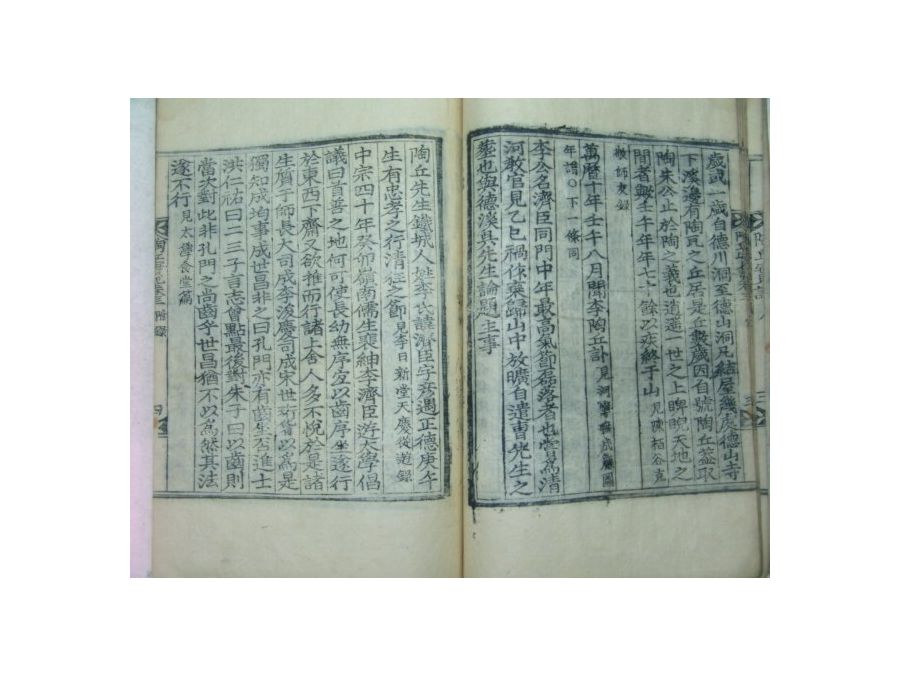 歲或一歲自德川洞至德山洞凡結屋幾處德山寺
下渡邊有陶瓦之丘居是丘數歲因自號陶丘盖取
陶朱公止於陶之義也逍遙一世之上睥睨天地之
間者數壬午年年七十餘以疾終于山見陳栢谷克
敬師友錄
萬曆十年壬午八月聞李陶丘訃見河寧無成屬圖
年譜〇下一條同
李公名濟臣同門中年最高氣節磊落者也嘗爲清
河敎官見乙巳禍作棄歸山中放曠自遣曺先生之
葬也與德溪具先生論題主事
陶丘先生鐵城人姓李氏諱濟臣字彦遇正德庚午
生有忠孝之行清狂之節見李日新堂天慶從遊錄
中宗四十年癸卯嶺南儒生裵紳李濟臣游大學倡
議曰首善之地何可使長幼無序宜以齒序坐遂行
於東西下齋又欲推而行諸上舍人多不悅於是諸
生質于師長大司成李浚慶司成宋世珩皆以爲是
獨知成均事成世昌非之曰孔門亦有齒坐否進士
洪仁祐曰二三子言志曾點最後對朱子曰以齒則
當次對此非孔門之尚齒乎世昌猶不以爲然其法
遂不行見太學食堂篇
附錄 四